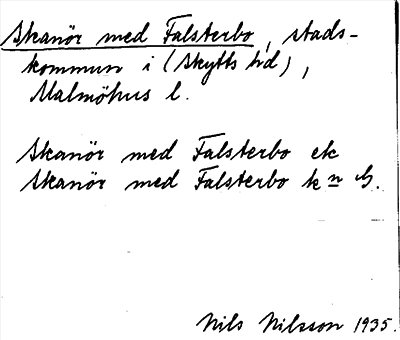 Skanör med Falsterbo, stads-
kommun i (Skytts hd),
Malmöhus l.
Skanör med Falsterbo ek
Skanör med Falsterbo k n
Nils Nilsson 1935.